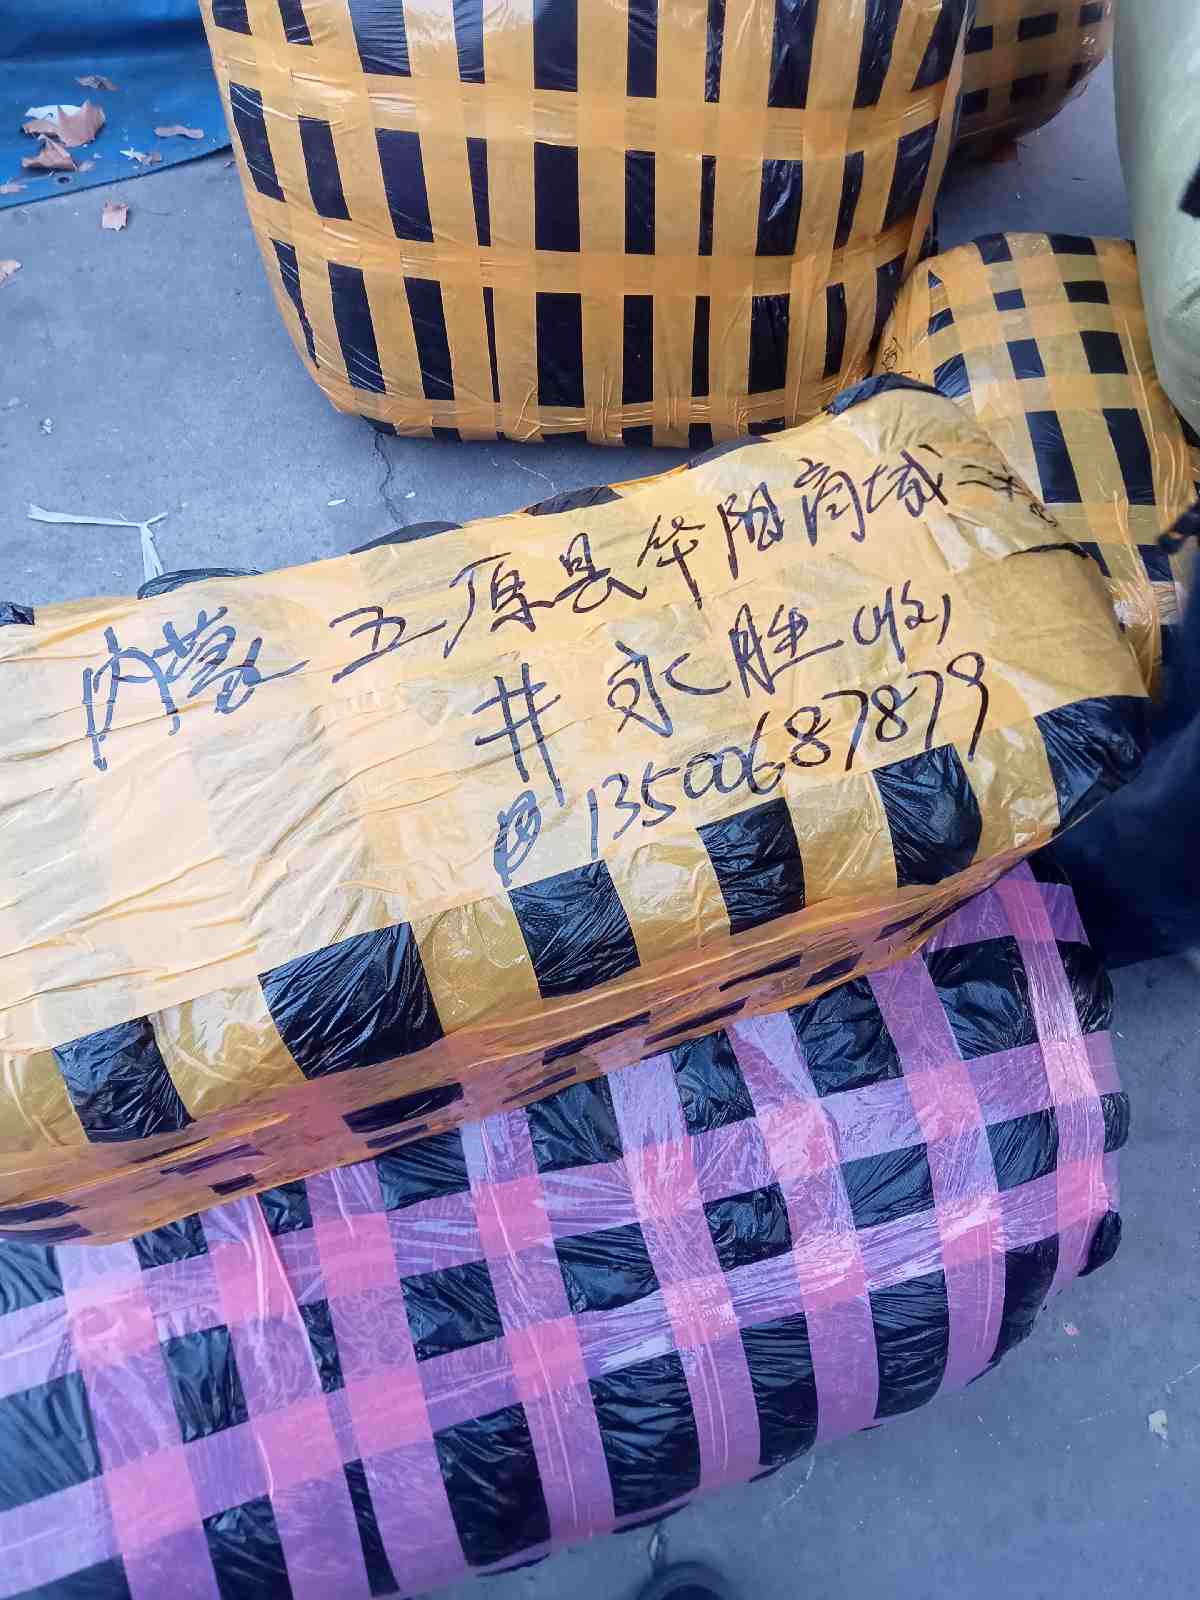 内蒙 五原县华阳商城
井永胜(收)
13500687879